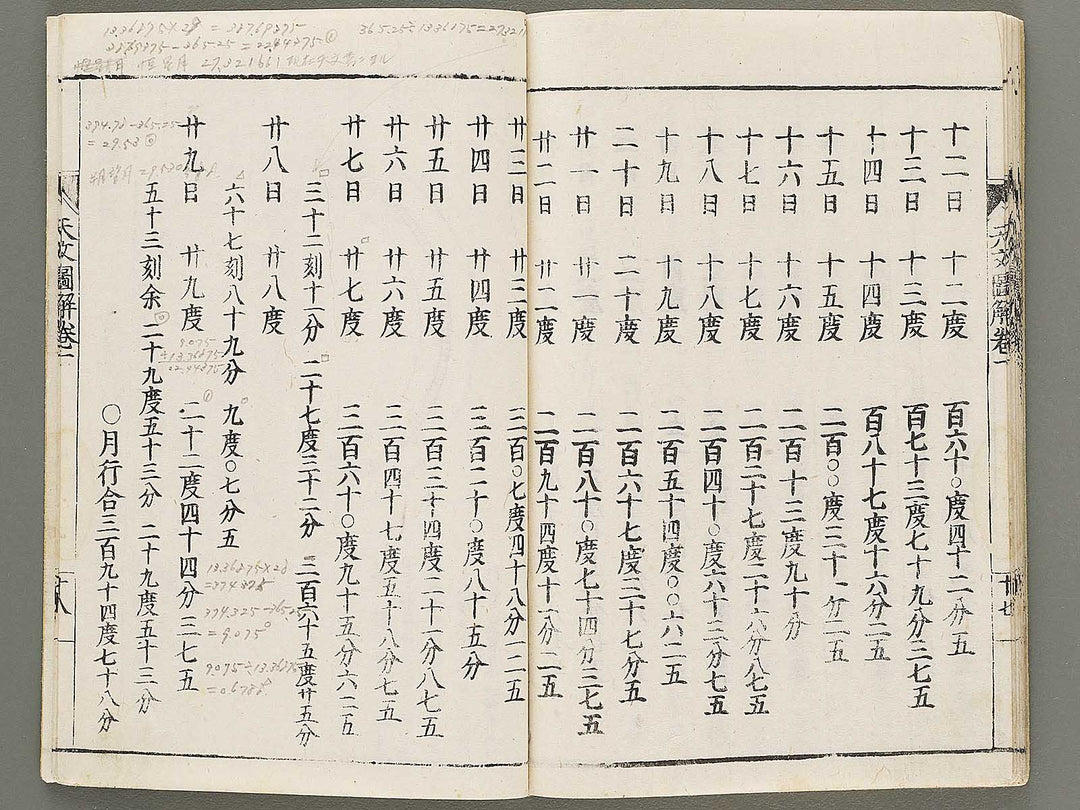 十二日 十二度 百六十〇度四十二分五
十三日 十三度 百七十三度七十九分三七五
十四日 十四度 百八十七度十六分二五
十五日 十五度 二百〇〇度三十一分二五
十六日 十六度 二百十三度九十分
十七日 十七度 二百二十七度二十六分八七五
十八日 十八度 二百四十〇度六十三分七五
十九日 十九度 二百五十四度〇〇六二五
二十日 二十度 二百六十七度三十七分五
廿一日 廿一度 二百八十〇度七十四分三七五
廿二日 廿二度 二百九十四度十一分二五
廿三日 廿三度 三百〇七度四十八分一二五
廿四日 廿四度 三百二十〇度八十五分
廿五日 廿五度 三百三十四度二十一分八七五
廿六日 廿六度 三百四十七度五十八分七五
廿七日 廿七度 三百六十〇度九十五分六二五
三十二刻十一分 二十七度三十二分 三百六十五度廿五分
廿八日 廿八度
六十七刻八十九分 九度〇七分五
廿九日 廿九度 二十二度四十四分三七五
五十三刻余 二十九度五十三分 二十九度五十三分
〇月行合三百九十四度七十八分
天文圖解卷一
十七
天文圖解卷二
十八
13.36875×28
=374.325
374.325-365.25
=9.075
9.075÷13.36875
=0.6788
9.075
+13.36875
22.44375